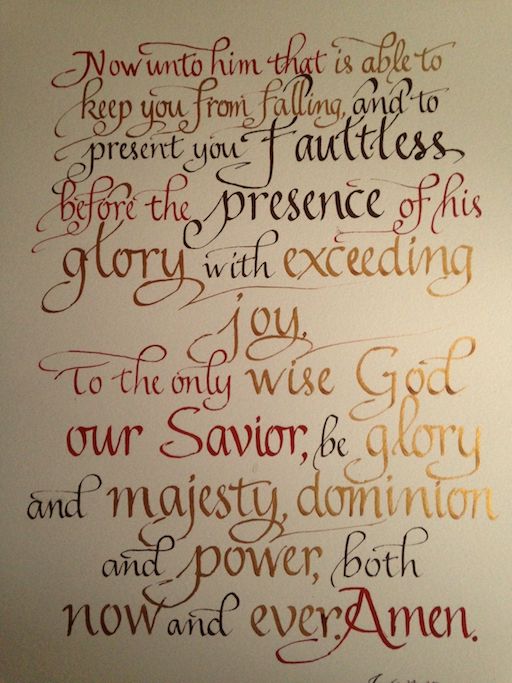 Now unto him that is able to
keep you from falling, and to
present you faultless
before the presence of his
glory with exceeding
joy.
To the only wise God
our Savior, be glory
and majesty, dominion
and power, both
now and ever. Amen.